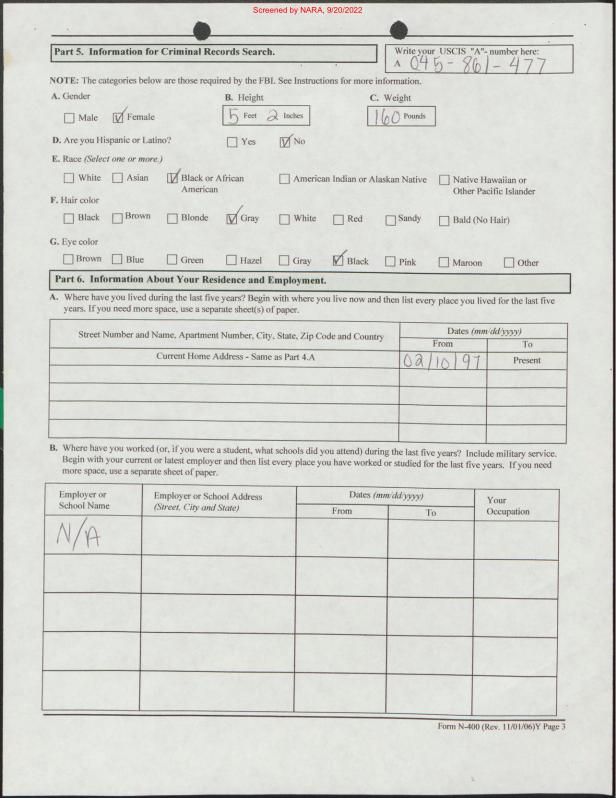 Screened by NARA, 9/20/2022
Part 5. Information for Criminal Records Search.
Write your USCIS "A"- number here:
A 045-861-477
NOTE: The categories below are those required by the FBI. See Instructions for more information.
A. Gender B. Height C. Weight
Male Female 5 Feet 2 Inches 160 Pounds
D. Are you Hispanic or Latino? Yes No
E. Race (Select one or more.)
White Asian Black or African American American Indian or Alaskan Native Native Hawaiian or Other Pacific Islander
F. Hair color
Black Brown Blonde Gray White Red Sandy Bald (No Hair)
G. Eye color
Brown Blue Green Hazel Gray Black Pink Maroon Other
Part 6. Information About Your Residence and Employment.
A. Where have you lived during the last five years? Begin with where you live now and then list every place you lived for the last five
years. If you need more space, use a separate sheet(s) of paper.
Street Number and Name, Apartment Number, City, State, Zip Code and Country Dates (mm/dd/yyyy)
From To
Current Home Address - Same as Part 4.A 02/10/97 Present
B. Where have you worked (or, if you were a student, what schools did you attend) during the last five years? Include military service.
Begin with your current or latest employer and then list every place you have worked or studied for the last five years. If you need
more space, use a separate sheet of paper.
Employer or School Name Employer or School Address (Street, City and State) Dates (mm/dd/yyyy) Your Occupation
From To
N/A
Form N-400 (Rev. 11/01/06)Y Page 3